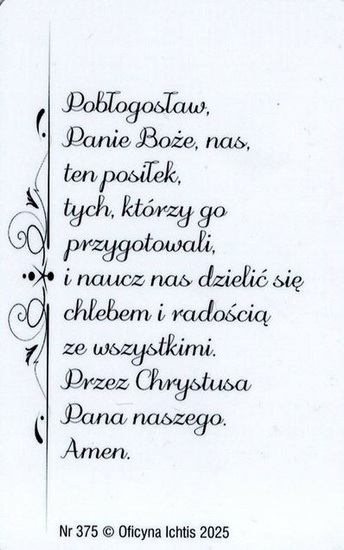 Pobłogosław,
Panie Boże, nas,
ten posiłek,
tych, którzy go
przygotowali,
i naucz nas dzielić się
chlebem i radością
ze wszystkimi.
Przez Chrystusa
Pana naszego.
Amen.
Nr 375 © Oficyna Ichtis 2025